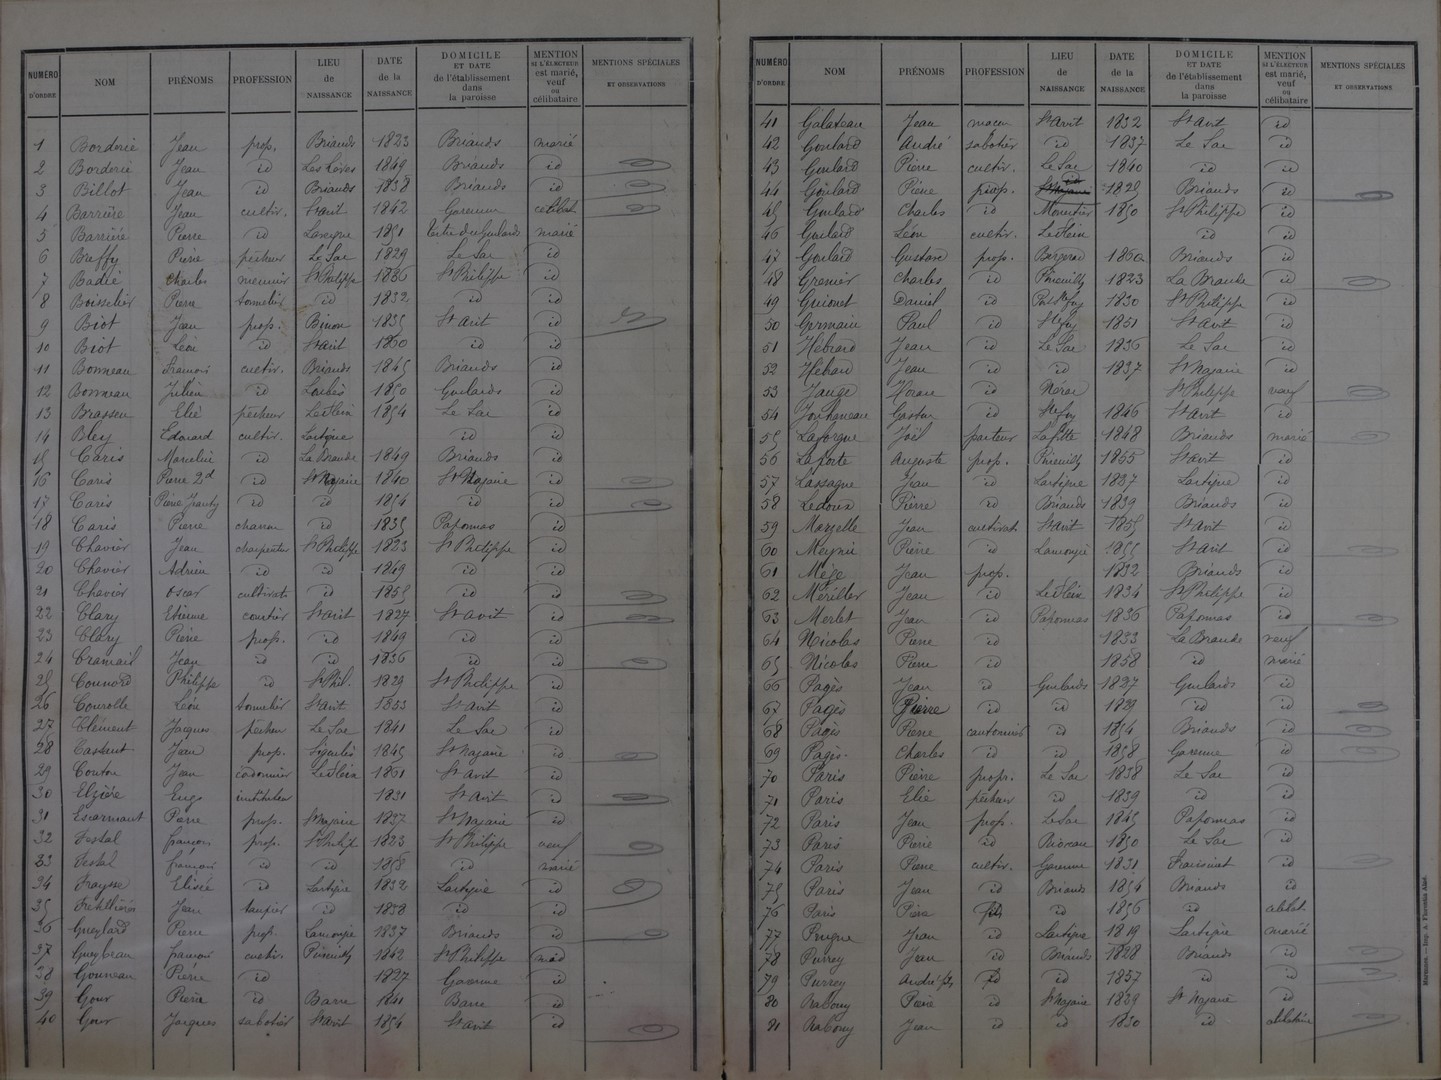 NUMÉRO D'ORDRE NOM PRÉNOMS PROFESSION LIEU de NAISSANCE DATE de la NAISSANCE DOMICILE ET DATE de l'établissement dans la paroisse MENTION SI L'ÉLECTEUR est marié, veuf ou célibataire MENTIONS SPÉCIALES ET OBSERVATIONS
1 Borderie Jean prop. Briands 1823 Briands marié
2 Borderie Jean id Les Lèves 1849 Briands id
3 Billot Jean id Briands 1838 Briands id
4 Barrière Jean cultiv. St avit 1842 Garenne célibat
5 Barrière Pierre id 1851 marié
6 Baffy Pierre pêcheur Le Sac 1829 Le Sac id
7 Badié Charles meunier St Philippe 1836 St Philippe id
8 Boisselier Pierre tonnelier id 1832 id id
9 Biot Jean prop. 1835 St avit id
10 Biot Léon id St avit 1860 id id
11 Bonneau François cultiv. Briands 1845 Briands id
12 Bonneau Julien id Loubès 1850 Goulards id
13 Brasseu Elie pêcheur 1854 Le Sac id
14 Bley Edouard cultiv. Lartigue id id
15 Caris Marcelin id La Brande 1849 Briands id
16 Caris Pierre 2d id St Nazaire 1840 St Nazaire id
17 Caris Pierre id id 1854 id id
18 Caris Pierre charron id 1835 Paponnas id
19 Chavier Jean charpentier St Philippe 1823 St Philippe id
20 Chavier Adrien id id 1849 id id
21 Chavier Oscar cultivat id 1858 id id
22 Clary Etienne courtier St avit 1827 St avit id
23 Clary Pierre prop. id 1849 id id
24 Cramail Jean id id 1836 id id
25 Connord Philippe id St Phil. 1829 St Philippe id
26 Courolle Léon tonnelier St avit 1853 St avit id
27 Clément Jacques pêcheur Le Sac 1841 Le Sac id
28 Castant Jean prop. Ligueles 1845 St Nazaire id
29 Couton Jean cordonnier 1861 St avit id
30 Elzière Eugs instituteur 1831 St avit id
31 Escarmant Pierre prop. St Nazaire 1837 St Nazaire id
32 Festal françois prop. St Philip 1823 St Philippe veuf
33 Festal françois id id 1858 id marié
34 Fraysse Elisée id Lartigue 1832 Lartigue id
35 Jean id 1838 id id
36 Gueylard Pierre prop. Lamonzie 1837 Briands id
37 Gueybeau françois cultiv. Rieucilly 1842 St Philippe
38 Gouneau Pierre id 1827 Garenne id
39 Gour Pierre id Barre Barre id
40 Gour Jacques sabotier St avit 1854 St avit id
NUMÉRO D'ORDRE NOM PRÉNOMS PROFESSION LIEU de NAISSANCE DATE de la NAISSANCE DOMICILE ET DATE de l'établissement dans la paroisse MENTION SI L'ÉLECTEUR est marié, veuf ou célibataire MENTIONS SPÉCIALES ET OBSERVATIONS
41 Galateau Jean macon St Avit 1832 St avit id
42 Goulard André sabotier id 1837 Le Sac id
43 Goulard Pierre cultiv. Le Sac 1840 id id
44 Goulard Pierre prop. id 1825 Briands id
45 Goulard Charles id Monestier 1850 St Philippe id
46 Goulard Léon cultiv. id id
47 Goulard Gustave prop. Bergerac 1860 Briands id
48 Grenier Charles id 1823 La Brande id
49 Guionet Daniel id 1830 St Philippe id
50 Germain Paul id Ste foy 1851 St avit id
51 Hébrard Jean id Le Sac 1836 Le Sac id
52 Hébard Jean id id 1837 St Nazaire id
53 Jauge id Nérac St Philippe veuf
54 Gaston id Ste foy 1846 St avit id
55 Laforgue Joël pasteur Lafitte 1848 Briands marié
56 Laporte Auguste prop. 1855 St avit id
57 Lassagne Jean id Lartigue 1837 Lartigue id
58 Ledoux Pierre id Briands 1839 Briands id
59 Mazelle Jean cultivat St avit 1855 St avit id
60 Meynié Pierre id Lamonzie 1855 St avit id
61 Mège Jean prop. 1832 Briands id
62 Mériller Jean id 1834 St Philippe id
63 Merlet Jean id Paponnas 1836 Paponnas id
64 Nicolas Pierre id 1833 La Brande veuf
65 Nicolas Pierre id 1858 id marié
66 Pagès Jean id Goulards 1827 Goulards id
67 Pagès Pierre id id 1829 id id
68 Pagès Pierre cantonnier id 1854 Briands id
69 Pagès Charles id id 1858 Garenne id
70 Paris Pierre propr. Le Sac 1838 Le Sac id
71 Paris Elie pêcheur id 1839 id id
72 Paris Jean prop. Le Sac 1845 Paponnas id
73 Paris Pierre id 1850 Le Sac id
74 Paris Pierre cultiv. Garenne 1831 id
75 Paris Jean id Briands 1854 Briands id
76 Paris Pierre id 1856 id célibat.
77 Prugue Jean id Lartigue 1819 Lartigue marié
78 Purrey Jean id Briands 1828 Briands id
79 Purrey André fils id id 1857 id id
80 Rabouy Pierre id St Nazaire 1829 St Nazaire id
81 Rabouy Jean id id 1830 id célibataire